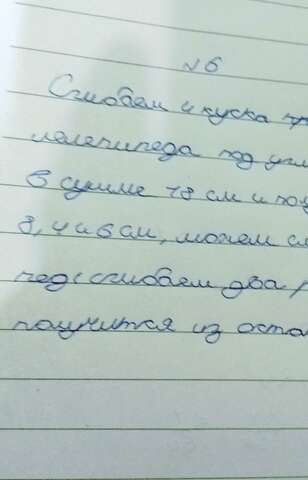 №6
Сгибаем 4 куска
лелепипеда под
в сумме 18 см и
8, 4 и 6 см, можем
под: сгибаем два
получится из